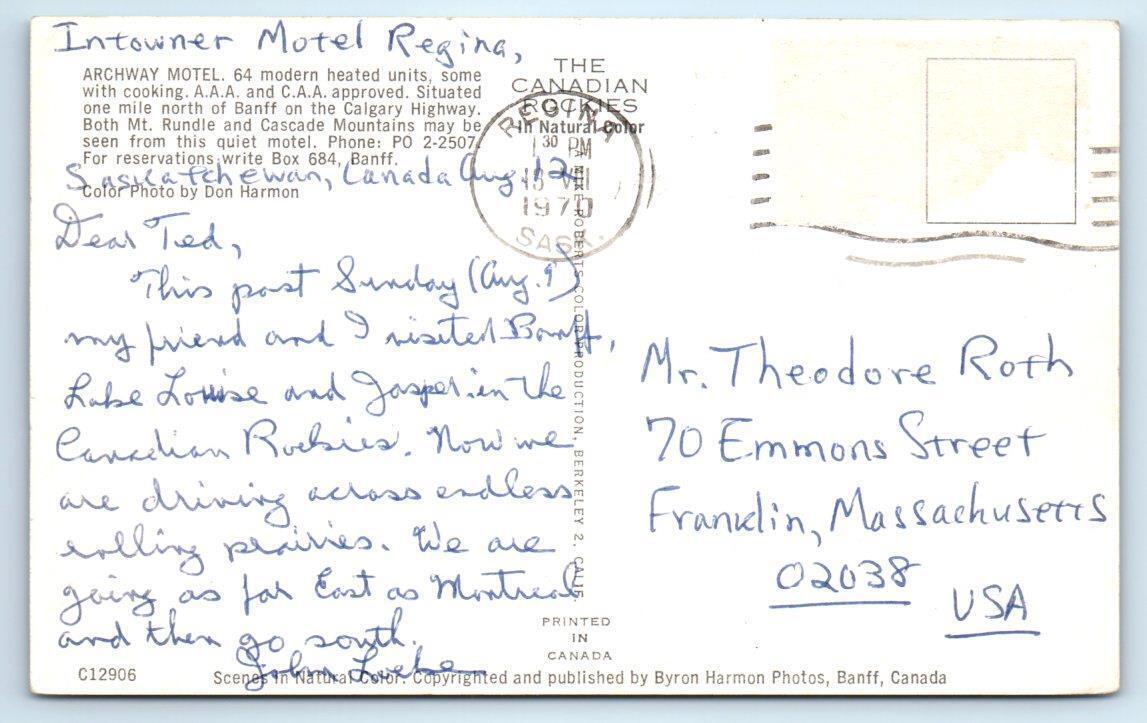 Intowner Motel Regina,
ARCHWAY MOTEL. 64 modern heated units, some
with cooking. A.A.A. and C.A.A. approved. Situated
one mile north of Banff on the Calgary Highway.
Both Mt. Rundle and Cascade Mountains may be
seen from this quiet motel. Phone: PO 2-2507.
For reservations write Box 684, Banff.
Saskatchewan, Canada Aug. 12
Color Photo by Don Harmon
Dear Ted,
This past Sunday (Aug. 9)
my friend and I visited Banff,
Lake Louise and Jasper in the
Canadian Rockies. Now we
are driving across endless
rolling prairies. We are
going as far East as Montreal
and then go south.
John
C12906
Scenes in Natural Color. Copyrighted and published by Byron Harmon Photos, Banff, Canada
THE
CANADIAN
ROCKIES
In Natural Color
REGINA
1 30 PM
13 VIII
1970
SASK.
A MIKE ROBERTS COLOR PRODUCTION, BERKELEY 2, CALIF.
PRINTED
IN
CANADA
Mr. Theodore Roth
70 Emmons Street
Franklin, Massachusetts
02038
USA